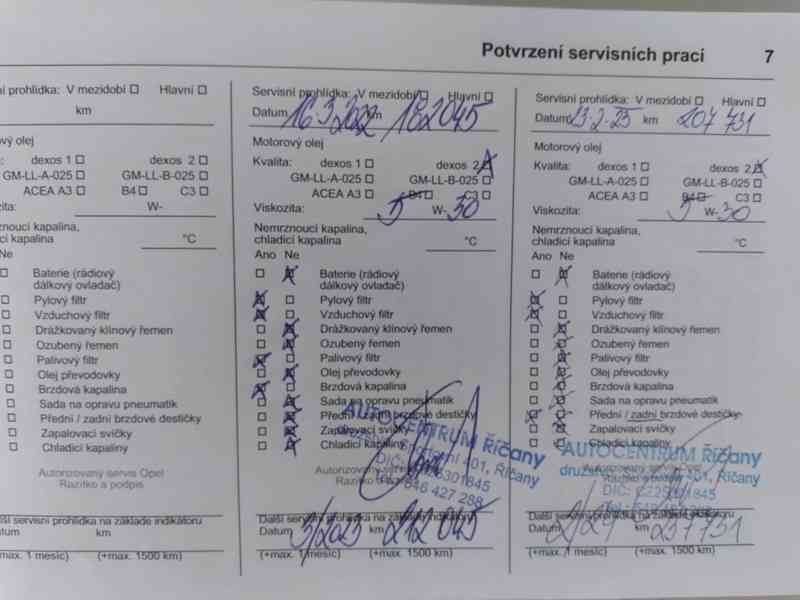 Potvrzení servisních prací 7
ní prohlídka: V mezidobí Hlavní
km
ový olej
dexos 1 dexos 2
GM-LL-A-025 GM-LL-B-025
ACEA A3 B4 C3
zita: W-
znoucí kapalina,
cí kapalina °C
Ne
Baterie (rádiový
dálkový ovladač)
Pylový filtr
Vzduchový filtr
Drážkovaný klínový řemen
Ozubený řemen
Palivový filtr
Olej převodovky
Brzdová kapalina
Sada na opravu pneumatik
Přední / zadní brzdové destičky
Zapalovací svíčky
Chladicí kapalina
Autorizovaný servis Opel
Razítko a podpis
alší servisní prohlídka na základě indikátoru
atum km
max. 1 měsíc) (+max. 1500 km)
Servisní prohlídka: V mezidobí Hlavní
Datum 16.3.2022 km 182045
Motorový olej
Kvalita: dexos 1 dexos 2
GM-LL-A-025 GM-LL-B-025
ACEA A3 B4 C3
Viskozita: 5 W- 30
Nemrznoucí kapalina,
chladicí kapalina °C
Ano Ne
Baterie (rádiový
dálkový ovladač)
Pylový filtr
Vzduchový filtr
Drážkovaný klínový řemen
Ozubený řemen
Palivový filtr
Olej převodovky
Brzdová kapalina
Sada na opravu pneumatik
Přední / zadní brzdové destičky
Zapalovací svíčky
Chladicí kapalina
AUTOCENTRUM Říčany
401, Říčany
646 427 288
Autorizovaný
Razítko
Další servisní prohlídka na základě indikátoru
Datum 3/2023 km 212045
(+max. 1 měsíc) (+max. 1500 km)
Servisní prohlídka: V mezidobí Hlavní
Datum 13.2.25 km 207 731
Motorový olej
Kvalita: dexos 1 dexos 2
GM-LL-A-025 GM-LL-B-025
ACEA A3 B4 C3
Viskozita: 5 W- 30
Nemrznoucí kapalina,
chladicí kapalina °C
Ano Ne
Baterie (rádiový
dálkový ovladač)
Pylový filtr
Vzduchový filtr
Drážkovaný klínový řemen
Ozubený řemen
Palivový filtr
Olej převodovky
Brzdová kapalina
Sada na opravu pneumatik
Přední / zadní brzdové destičky
Zapalovací svíčky
Chladicí kapalina
AUTOCENTRUM Říčany
401, Říčany
Další servisní prohlídka na základě indikátoru
Datum km 237731
(+max. 1 měsíc) (+max. 1500 km)